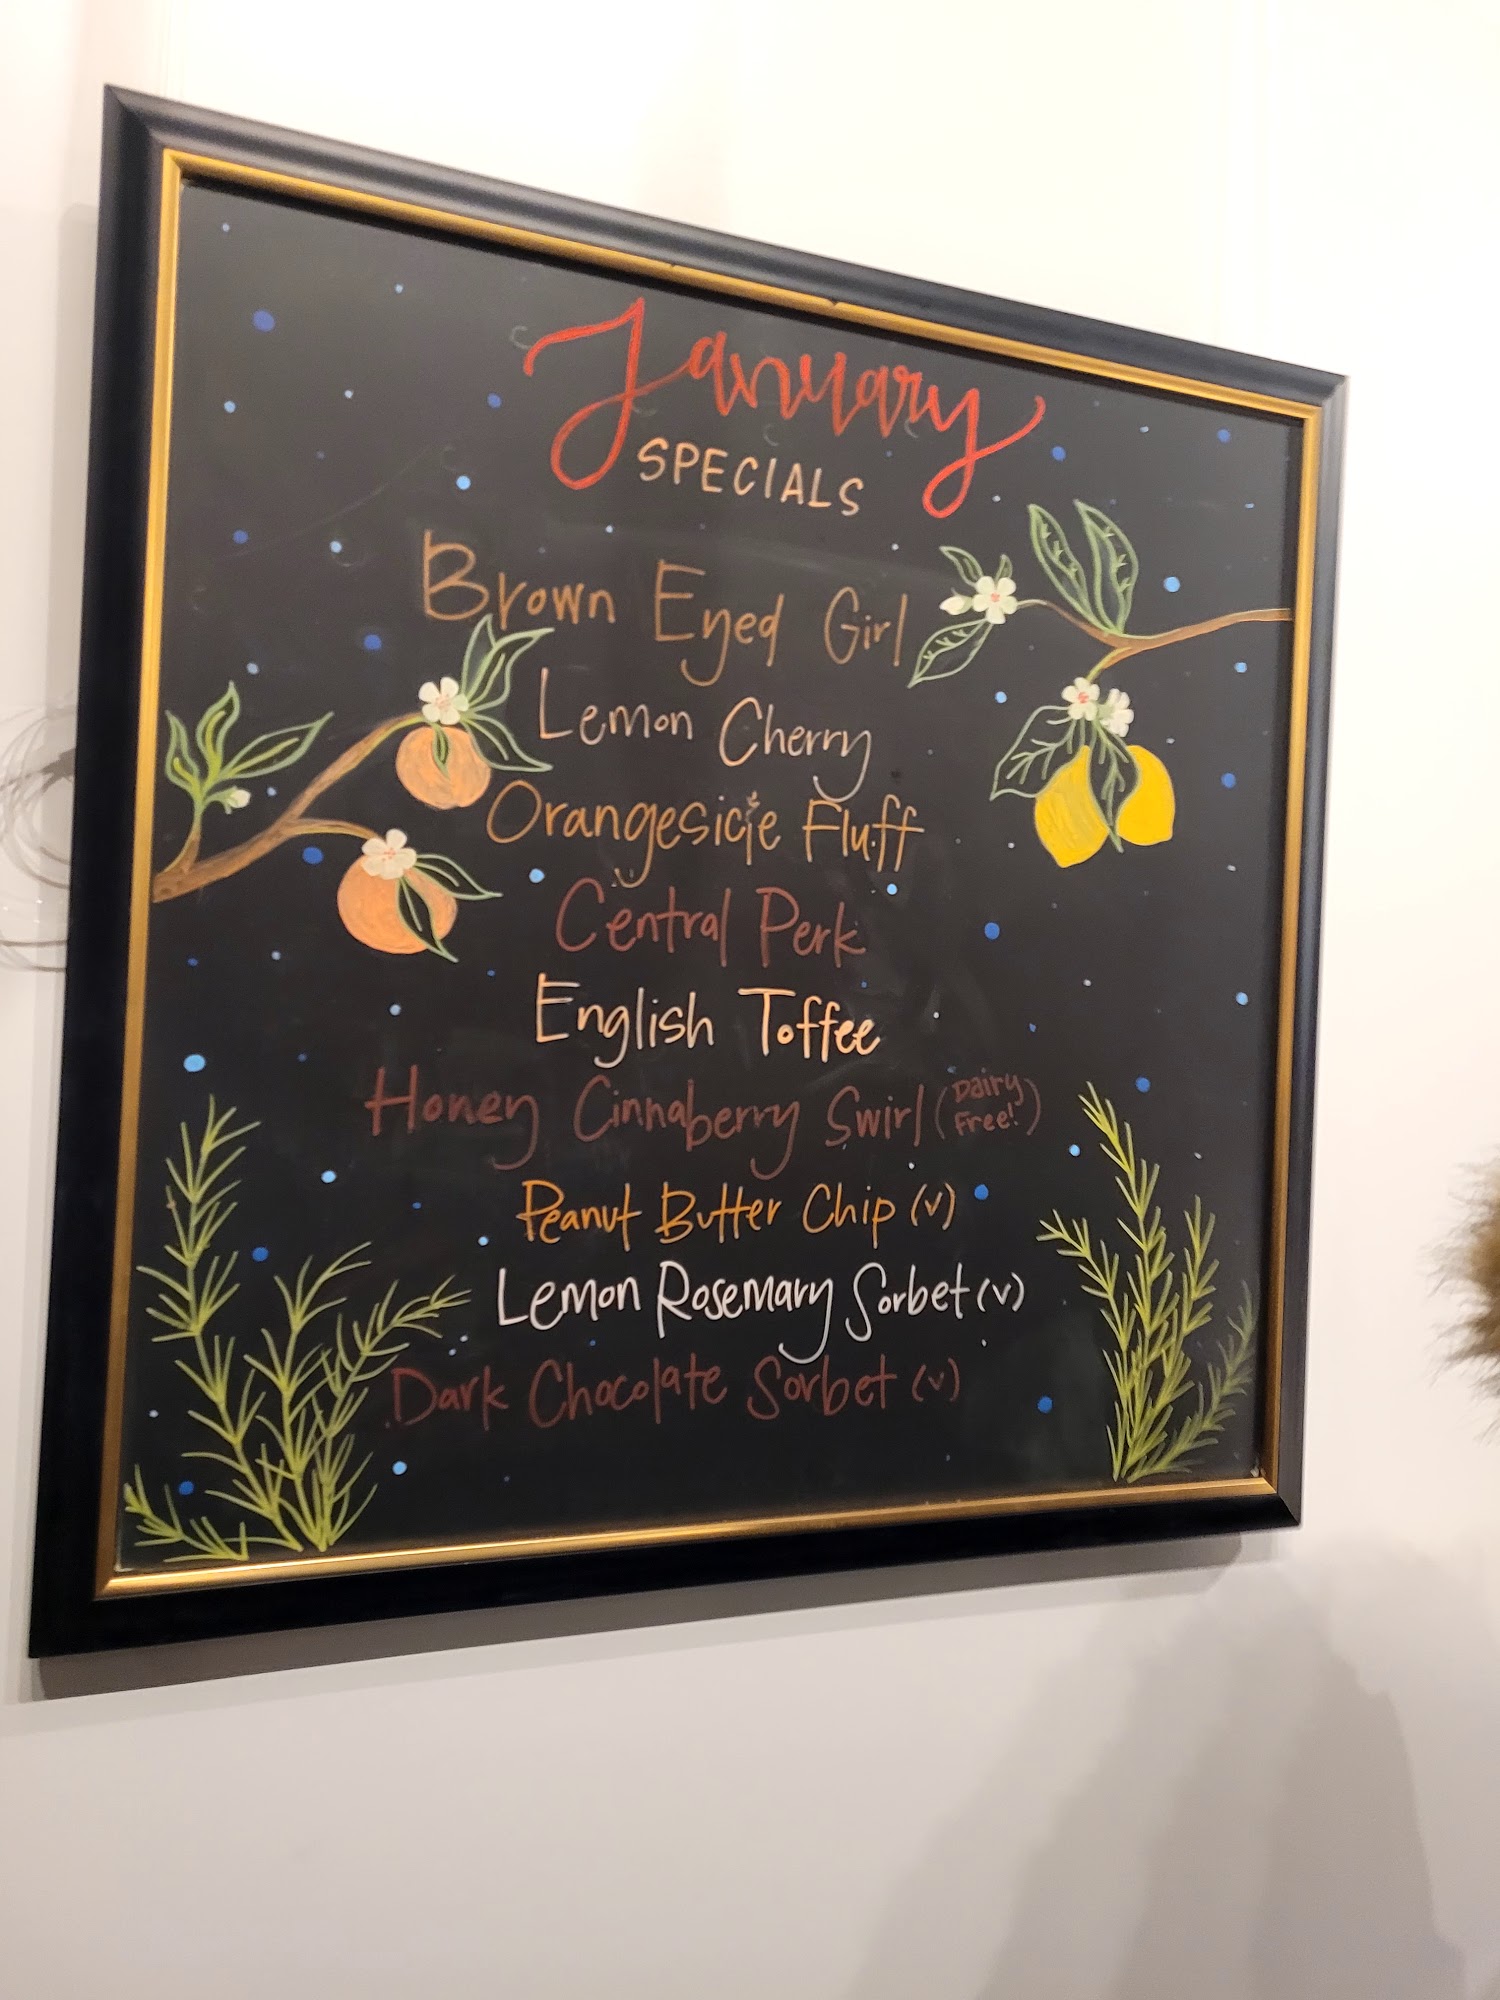 January
SPECIALS
Brown Eyed Girl
Lemon Cherry
Orangesicle Fluff
Central Perk
English Toffee
Honey Cinnaberry Swirl (Dairy Free!)
Peanut Butter Chip (v)
Lemon Rosemary Sorbet (v)
Dark Chocolate Sorbet (v)